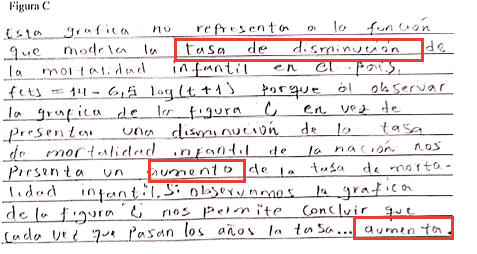 Figura C
Esta grafica no representa a la función
que modela la tasa de disminución de
la mortalidad infantil en el país,
f(t) = 14 - 6,5 log(t+1) porque al observar
la grafica de la figura C, en vez de
presentar una disminución de la tasa
de mortalidad infantil de la nación nos
presenta un aumento de la tasa de morta-
lidad infantil. Si observamos la grafica
de la figura C nos permite concluir que
cada vez que pasan los años la tasa... aumenta.